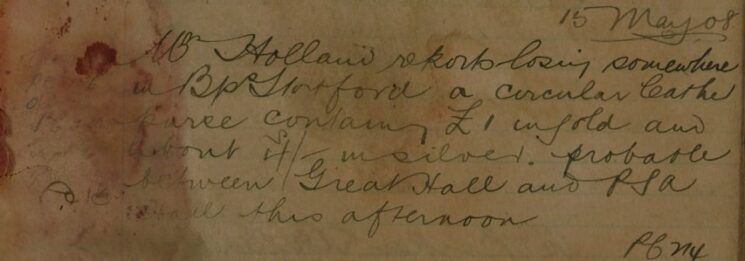 15 May 08
Mr Holland reports losing somewhere
in Bp Stortford a circular Leather
purse containing £1 in gold and
about 4/- in silver. probable
between Great Hall and PSA
Hall this afternoon
PC